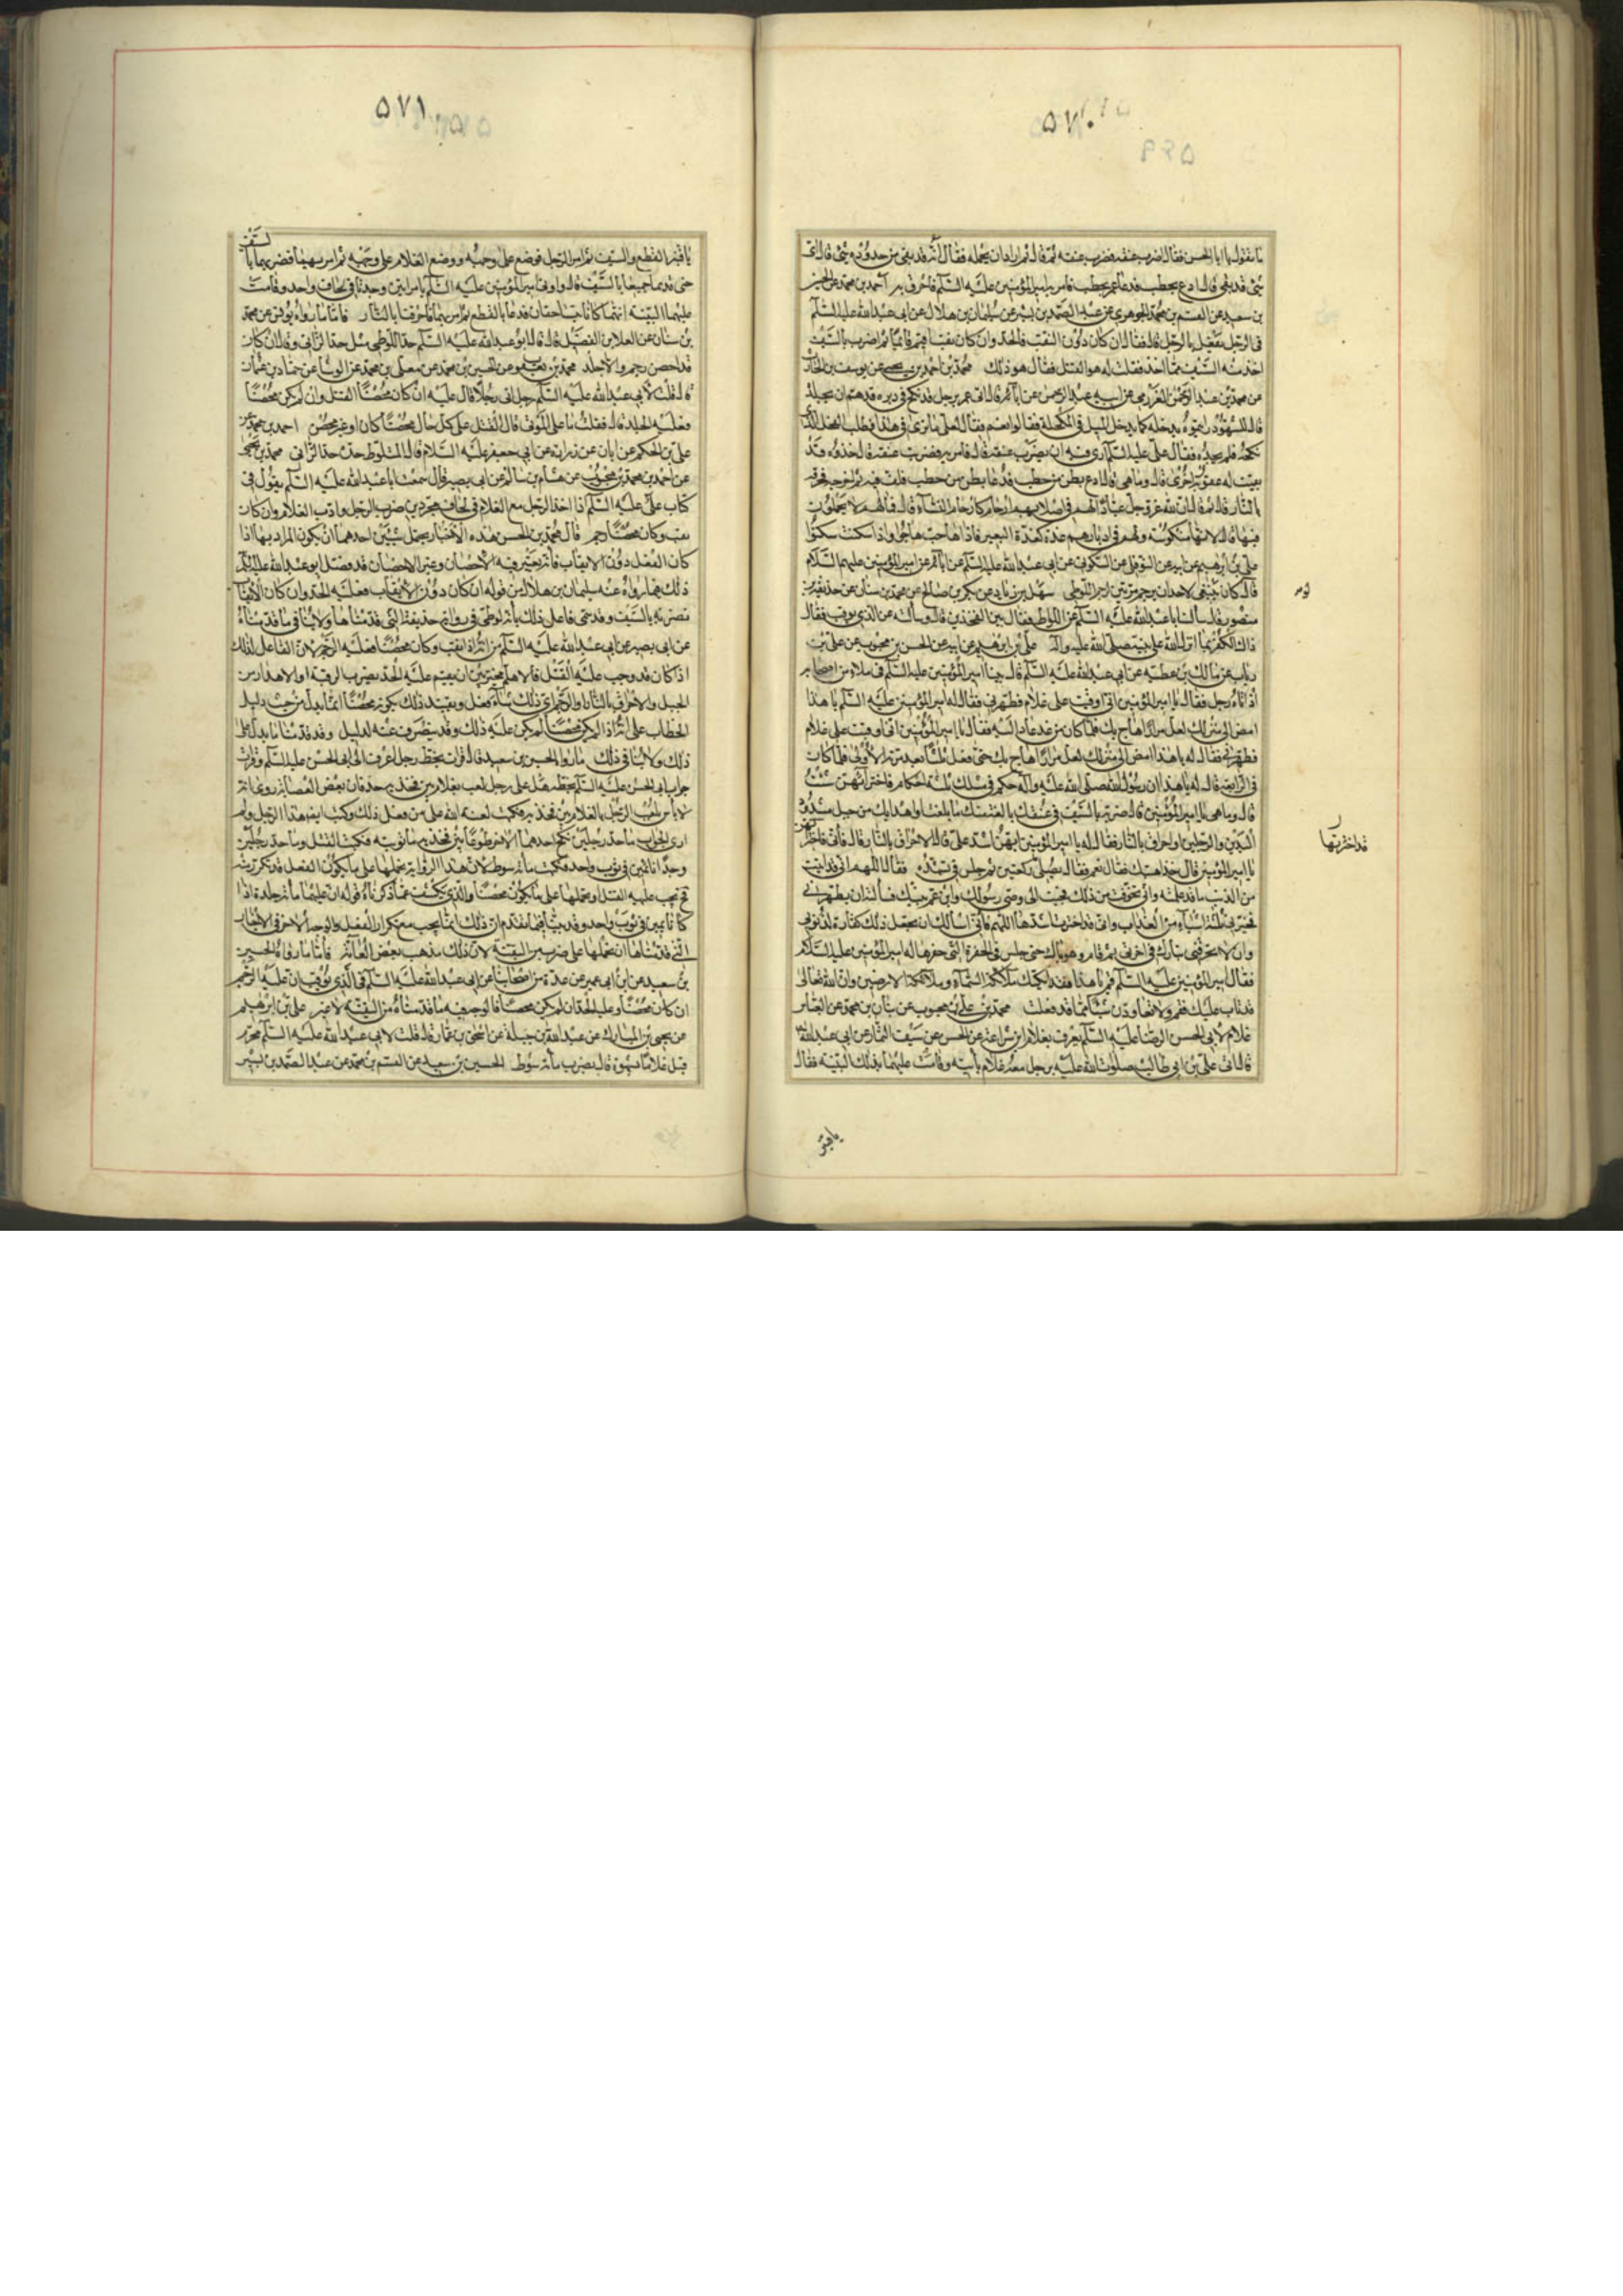 ٥٧٠
ما تقول يا ابا الحسن فقال اضرب عنقه فضرب عنقه ثم قال ثم اراد ان يحمله فقال انه قد بقى من حدوده شئ قال اى
شئ قد بقى قال ادع بحطب فدعا عمر بحطب فامر به امير المؤمنين عليه السلم فاحرق به احمد بن محمد عن الحسين
بن سعيد عن القسم بن محمد الجوهرى عن عبد الصمد بن بشير عن سليمان بن هلال عن ابى عبد الله عليه السلم
فى الرجل يفعل بالرجل قال فقال ان كان دون الثقب فالحد وان كان ثقب اقيم قائما ثم ضرب بالسيف
اخذ منه السيف ما اخذ فقلت له هو القتل فقال هو ذلك محمد بن احمد بن يحيى عن يوسف بن الحارث
عن محمد بن عبد الرحمن العزرمى عن ابيه عبد الرحمن عن قال اتى عمر برجل قد نكح فى دبره فهم ان يجلده
فقال للشهود رايتموه يدخله كما يدخل الميل فى المكحلة فقالوا نعم فقال لعلى ما ترى فى هذا فطلب الفحل الذى
نكحه فلم يجده فقال على عليه السلم ارى فيه ان تضرب عنقه قال فامر به فضربت عنقه قال خذوه فقد
بقيت له عقوبة اخرى قال وما هى قال ادع بطن من حطب فدعا بطن من حطب فلف فيه ثم اخرجه فاحرقه
بالنار قال ثم قال ان لله عز وجل عبادا لهم فى اصلابهم ارحام كارحام النساء قال فما لهم لا يحملون
فيها قال لانها منكوسة ولهم فى ادبارهم غدة كغدة البعير فاذا هاجت هاجوا واذا سكنت سكنوا
على بن ابرهيم عن ابيه عن النوفلى عن السكونى عن ابى عبد الله عليه السلم عن امير المؤمنين عليهما السلام
قال لو كان ينبغى لاحد ان يرجم مرتين لرجم اللوطى سهل بن زياد عن بكر بن صالح عن محمد بن سنان عن حذيفة بن
منصور قال سالت ابا عبد الله عليه السلم عن اللواط فقال بين الفخذين قال وسالته عن الذى يوقب فقال
ذاك الكفر بما انزل الله على نبيه صلى الله عليه واله على بن ابرهيم عن ابيه عن الحسن بن محبوب عن على بن
رئاب عن مالك بن عطية عن ابى عبد الله عليه السلم قال بينا امير المؤمنين عليه السلم فى ملاء من اصحابه
اذ اتاه رجل فقال يا امير المؤمنين انى اوقبت على غلام فطهرنى فقال له امير المؤمنين عليه السلم يا هذا
امض الى منزلك لعل مرارا هاج بك فلما كان من غد عاد اليه فقال يا امير المؤمنين انى اوقبت على غلام
فطهرنى فقال له يا هذا امض الى منزلك لعل مرارا هاج بك حتى فعل ثلثا بعد مرته الاولى فلما كان
فى الرابعة قال له يا هذا ان رسول الله صلى الله عليه واله حكم فى مثلك بثلثة احكام فاختر ايهن شئت
قال وما هى يا امير المؤمنين قال ضربة بالسيف فى عنقك بالغة منك ما بلغت او اهدابك من جبل مشدود
اليدين والرجلين او احراق بالنار فقال له يا امير المؤمنين ايهن اشد على قال الاحراق بالنار قال فانى قد اخترتها
يا امير المؤمنين قال خذ اهبتك فقال نعم فقال فصلى ركعتين ثم جلس فى تشهده فقال اللهم انى قد اتيت
من الذنب ما قد علمته وانى تخوفت من ذلك فجئت الى وصى رسولك وابن عم نبيك فسألته ان يطهرنى
فخيرنى ثلثة اشياء من العذاب وانى قد اخترت اشدها اللهم فانى اسالك ان تجعل ذلك كفارة لذنوبى
وان لا تحرقنى بنارك فى اخرتى ثم قام وهو باك حتى جلس فى الحفرة التى حفرها له امير المؤمنين عليه السلم
فقال امير المؤمنين عليه السلم قم يا هذا فقد ابكيت ملائكة السماء وملائكة الارضين وان الله تعالى
قد تاب عليك فقم ولا تعاودن شيئا مما قد فعلت محمد بن على بن محبوب عن بنان بن محمد عن العباس
غلام لابى الحسن الرضا عليه السلم يعرف بغلام ابن شراعة عن الحسن عن سيف التمار عن ابى عبد الله
قال اتى على بن ابى طالب صلوات الله عليه برجل معه غلام ياتيه وقامت عليهما بذلك البينة فقال
لو
قد اخترتها
يا قنبر
٥٧١
يا قنبر النطع والسيف ثم امر بالرجل فوضع على وجهه ووضع الغلام على وجهه ثم امر بهما فضربهما بالسيف
حتى قدهما جميعا بالسيف قال واتى امير المؤمنين عليه السلم بامراتين وجدتا فى لحاف واحد وقامت
عليهما البينة انهما كانتا تتساحقان فدعا بالنطع ثم امر بهما فاحرقتا بالنار فاما ما رواه يونس عن محمد
بن سنان عن العلا بن الفضيل قال قال ابو عبد الله عليه السلم حد اللوطى مثل حد الزانى وقال ان كان
قد احصن رجم والا جلد محمد بن يعقوب عن الحسين بن محمد عن معلى بن محمد عن الوشا عن حماد بن عثمان
قال قلت لابى عبد الله عليه السلم رجل اتى رجلا قال عليه ان كان محصنا القتل وان لم يكن محصنا
فعليه الجلد قال فقلت ما على الموتى قال القتل على كل حال محصنا كان او غير محصن احمد بن محمد عن
على بن الحكم عن ابان عن زرارة عن ابى جعفر عليه السلام قال المتلوط حده حد الزانى محمد بن يحيى
عن احمد بن محمد بن محبوب عن هشام بن سالم عن ابى بصير قال سمعت ابا عبد الله عليه السلم يقول فى
كتاب على عليه السلم اذا اخذ الرجل مع الغلام فى لحاف مجردين ضرب الرجل وادب الغلام وان كان
ثقب وكان محصنا رجم قال محمد بن الحسن هذه الاخبار يحتمل شيئين احدهما ان يكون المراد بها اذا
كان الفعل دون الايقاب فانه يعتبر فيه الاحصان وغير الاحصان قد فصل ابو عبد الله عليه السلم
ذلك فيما رواه عنه سليمان بن هلال من قوله ان كان دون الايقاب فعليه الحد وان كان الايقاب
ضربة بالسيف وقد سمى فاعل ذلك بانه لوطى فى رواية حذيفة التى قدمناها ولا ينافى ما قدمناه
عن ابى بصير عن ابى عبد الله عليه السلم من انه اذا ثقب وكان محصنا فعليه الرجم لان الفاعل لذلك
اذا كان قد وجب عليه القتل فالامام مخير بين ان يقيم عليه الحد بضرب الرقبة او الاهدار من
الجبل والاحراق بالنار او الرجم اى ذلك شاء فعل وتقييد ذلك بكونه محصنا انما يدل من حيث دليل
الخطاب على انه اذا لم يكن محصنا لم يكن عليه ذلك وقد ينصرف عنه لدليل وقد قدمنا ما يدل على
ذلك ولا ينافى ذلك ما رواه الحسين بن سعيد قال قرات بخط رجل اعرفه الى ابى الحسن عليه السلم وقرات
جواب ابى الحسن عليه السلم بخطه هل على رجل لعب بغلام بين فخذيه حد فان بعض العصابة روى انه
لا بأس بلعب الرجل بالغلام بين فخذيه فكتب لعنة الله على من فعل ذلك وكتب ايضا هذا الرجل ولم
ار الجواب ما حد رجلين نكح احدهما الاخر طوعا بين فخذيه ما توبته فكتب القتل وما حد رجلين
وجدا نائمين فى ثوب واحد فكتب مائة سوط لان هذه الرواية نحملها على ما يكون الفعل قد تكرر منه
فح يجب عليه القتل او نحملها على ما يكون محصنا والذى يكشف عما ذكرناه قوله ان عليهما مائة جلدة اذا
كانا نائمين فى ثوب واحد وقد بينا فيما تقدم ان ذلك انما يجب مع تكرار الفعل والوجه الاخر فى الاخبار
التى قدمناها ان نحملها على ضرب من التقية لان ذلك مذهب بعض العامة فاما ما رواه الحسين
بن سعيد عن ابن ابى عمير عن عدة من اصحابنا عن ابى عبد الله عليه السلم فى الذى يوقب ان عليه الرجم
ان كان محصنا وعليه الحد ان لم يكن محصنا فالوجه فيه ما قدمناه من التقية لا غير على بن ابرهيم
عن يحيى بن المبارك عن عبد الله بن جبلة عن اسحق بن عمار قال قلت لابى عبد الله عليه السلم محرم
قبل غلاما بشهوة قال يضرب مائة سوط الحسين بن سعيد عن القسم بن محمد عن عبد الصمد بن بشير